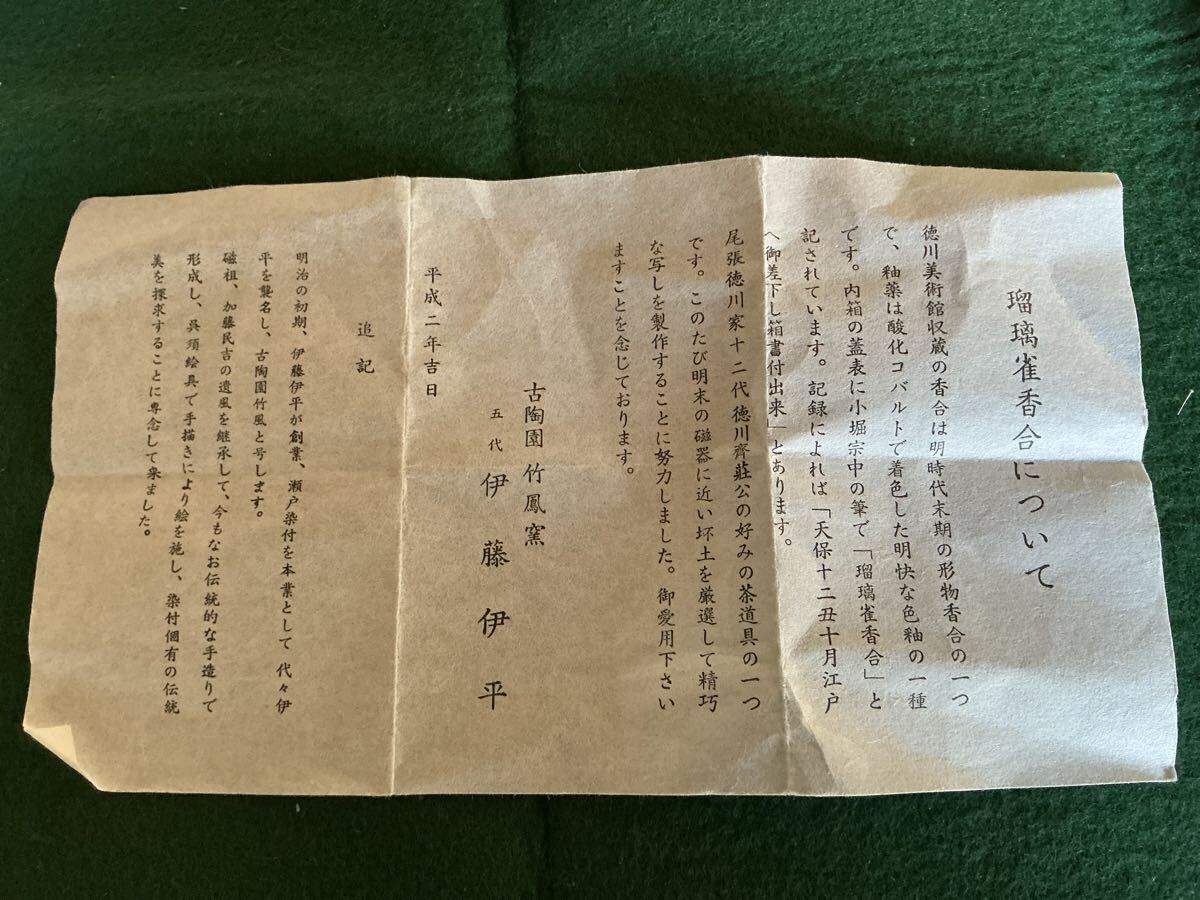 瑠璃雀香合について
徳川美術館収蔵の香合は明時代末期の形物香合の一つ
で、釉薬は酸化コバルトで着色した明快な色釉の一種
です。内箱の蓋表に小堀宗中の筆で「瑠璃雀香合」と
記されています。記録によれば「天保十二丑十月江戸
へ御差下し箱書付出来」とあります。
尾張徳川家十二代徳川齊荘公の好みの茶道具の一つ
です。このたび明末の磁器に近い坏土を厳選して精巧
な写しを製作することに努力しました。御愛用下さい
ますことを念じております。
古陶園 竹鳳窯
五代 伊藤伊平
平成二年吉日
追記
明治の初期、伊藤伊平が創業、瀬戸染付を本業として 代々伊
平を襲名し、古陶園竹風と号します。
磁祖、加藤民吉の遺風を継承して、今もなお伝統的な手造りで
形成し、呉須絵具で手描きにより絵を施し、染付個有の伝統
美を探求することに専念して来ました。